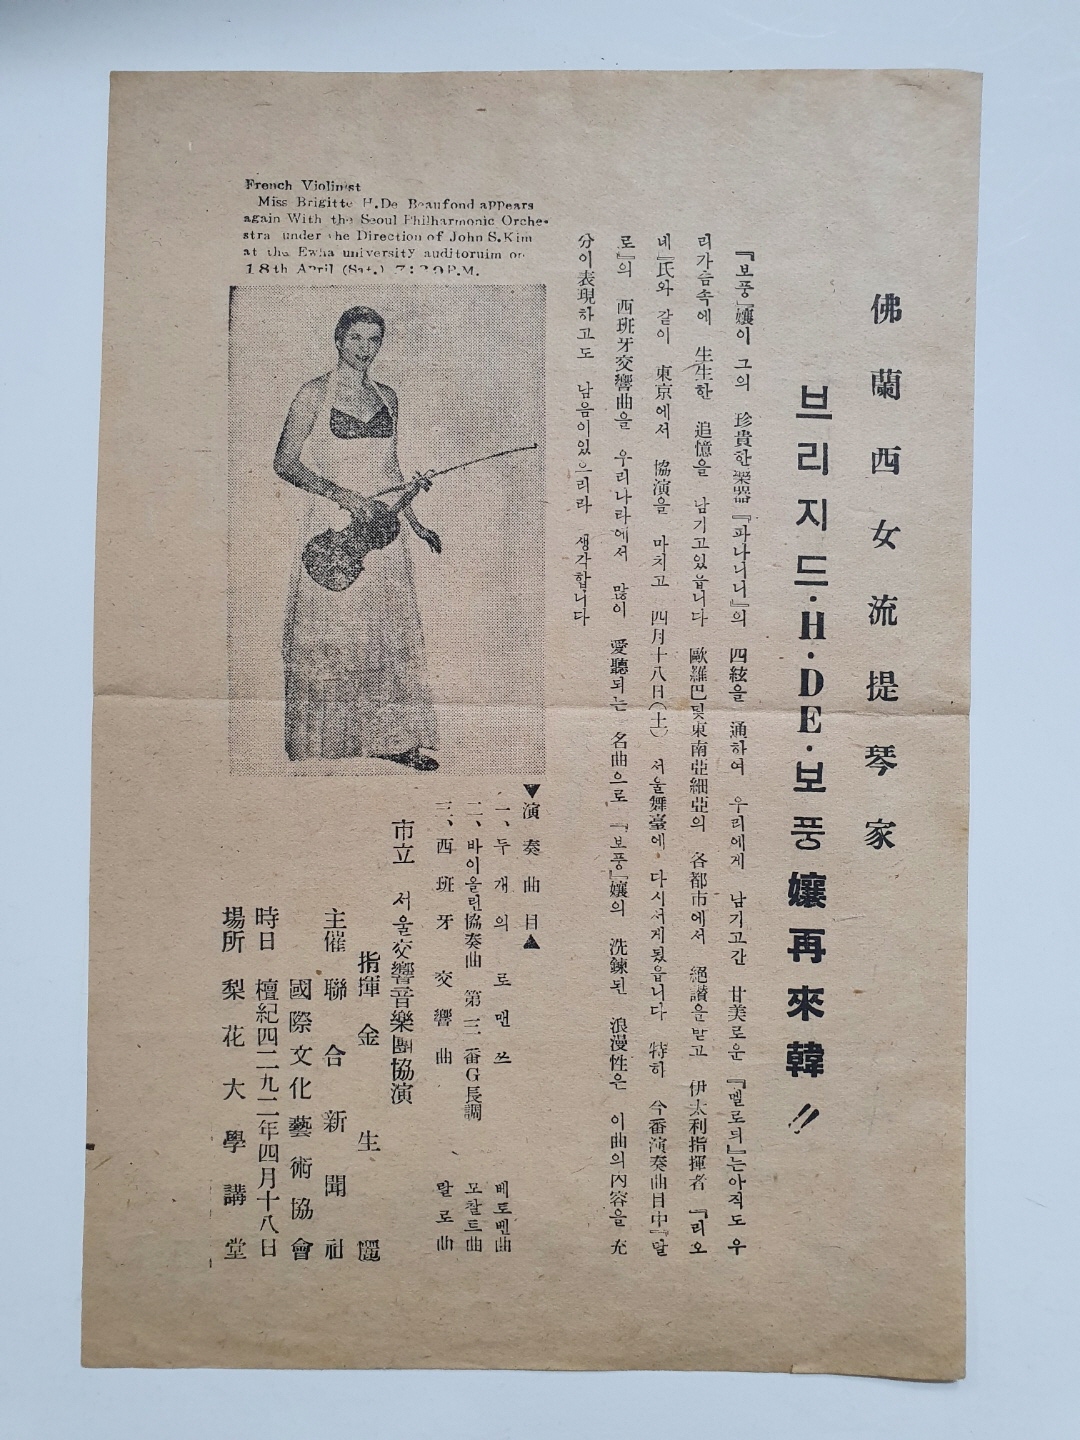 佛蘭西女流提琴家
브리지드·H·DE·보풍孃再來韓!!
『보풍』孃이 그의 珍貴한樂器『파니니니』의 四絃을 通하여 우리에게 남기고간 甘美로운 『멜로듸』는아직도 우
리가슴속에 生生한 追憶을 남기고있읍니다 歐羅巴및東南亞細亞의 各都市에서 絕讃을받고 伊太利指揮者 『리오
네』氏와 같이 東京에서 協演을 마치고 四月十八日(土) 서울舞臺에 다시서게됬읍니다 特히 今番演奏曲目中『랄
로』의 西班牙交響曲을 우리나라에서 많이 愛聽되는 名曲으로 『보풍』孃의 洗鍊된 浪漫性은 이曲의內容을 充
分이表現하고도 남음이있으리라 생각합니다
French Violinist
Miss Brigitte H.De Beaufond appears
again With the Seoul Philharmonic Orche-
stra under the Direction of John S.Kim
at the Ewha university auditoruim on
18th April (Sat.) 7:30P.M.
▼演奏曲目▲
一、두개의 로맨쓰 베토벤曲
二、바이올린協奏曲 第三番G長調 모찰트曲
三、西班牙交響曲 랄로曲
市立 서울交響音樂團協演
指揮 金生麗
主催 聯合新聞社
國際文化藝術協會
時日 檀紀四二九二年四月十八日
場所 梨花大學講堂